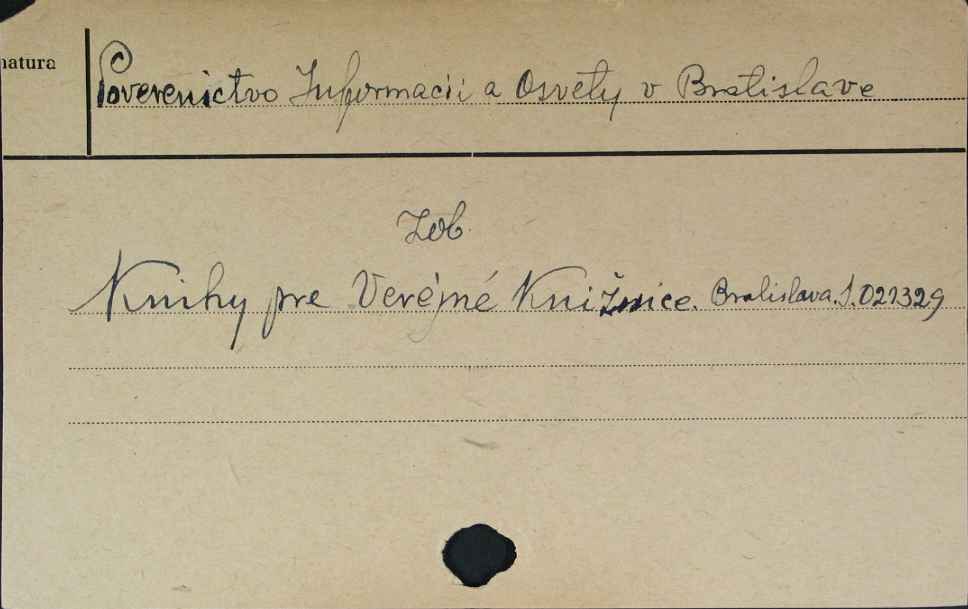 natura
Poverenictvo Informacií a Osvety v Bratislave
Zob.
Knihy pre Verejné Knižnice. Bratislava. S.021329